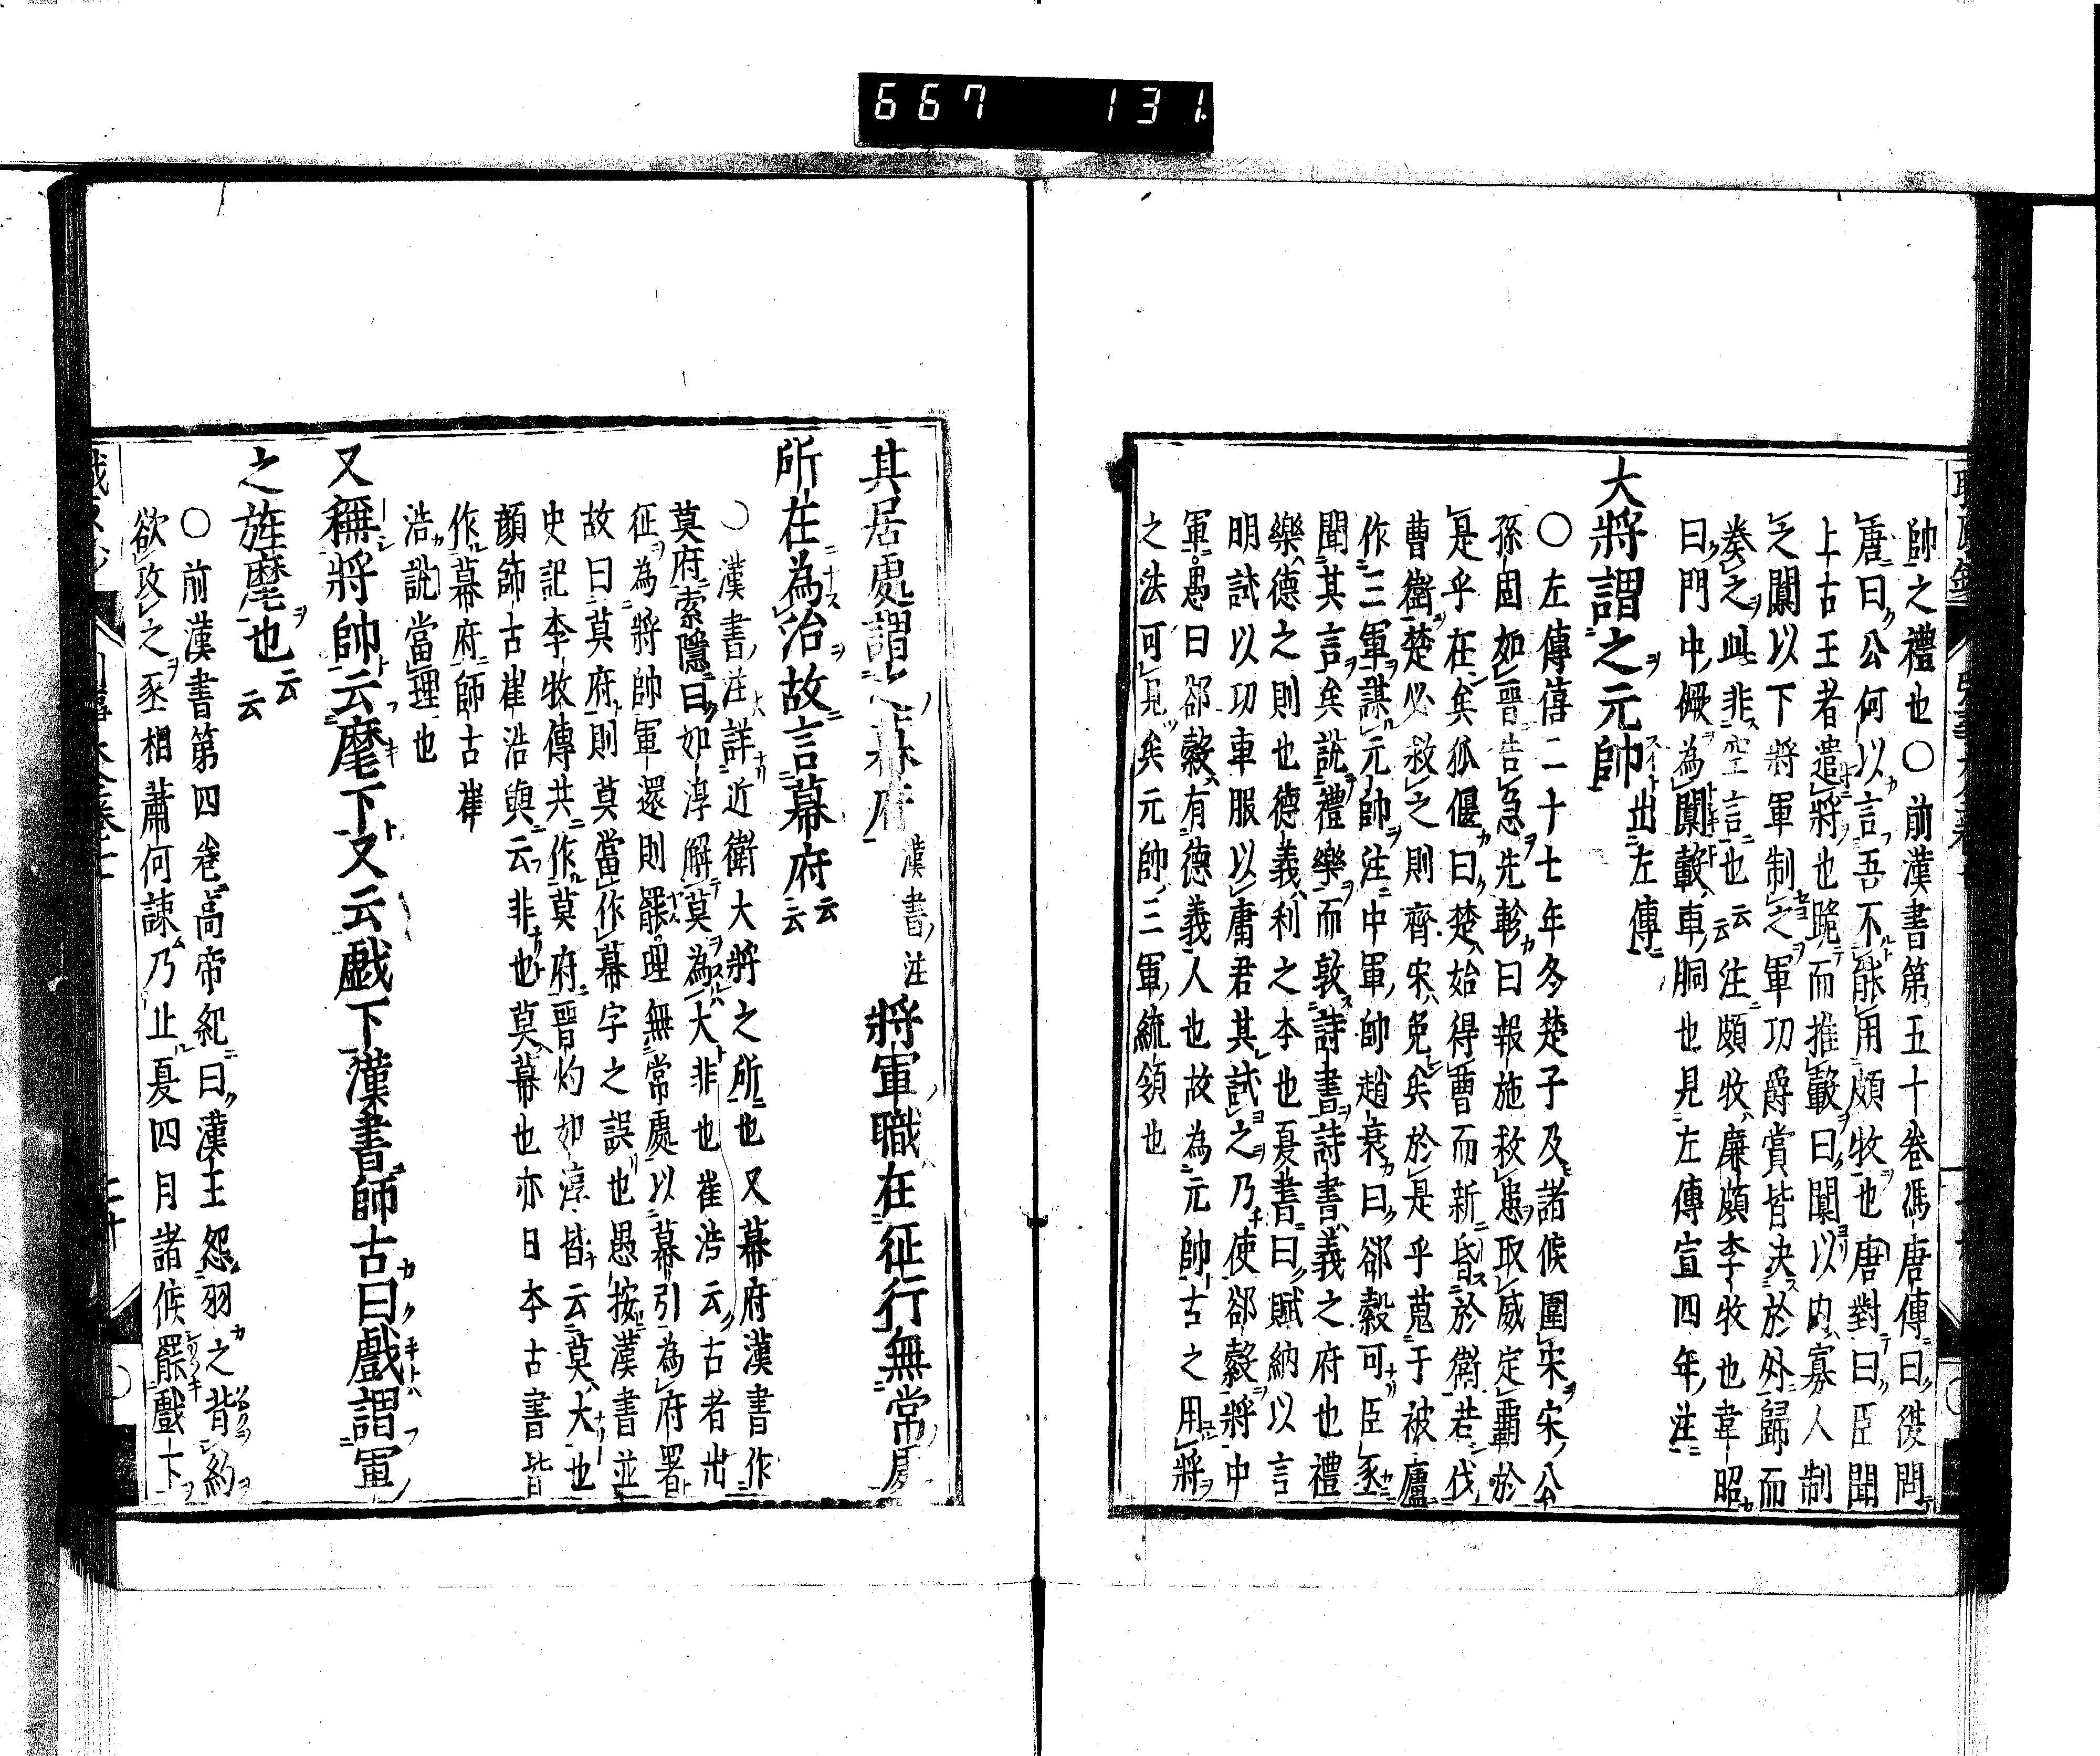 667 131
帥之禮也〇前漢書第五十卷馮唐傳曰復問
唐曰公何以言吾不能用頗牧也唐對曰臣聞
上古王者遣將也跪而推轂曰闑以内寡人制
之闑以下將軍制之軍功爵賞皆決於外歸而
奏之此非空言也云云注頗牧廉頗李牧也韋昭
曰門中橛為闑轂車胴也見左傳宣四年注
大將謂之元帥出左傳
〇左傳僖二十七年冬楚子及諸候圍宋宋公
孫固如晋告急先軫曰報施救患取威定覇於
是乎在矣狐偃曰楚始得曹而新昏於衛若伐
曹衛楚必救之則齊宋免矣於是乎蒐于被廬
作三軍謀元帥注中軍帥趙衰曰郤縠可臣亟
聞其言矣説禮樂而敦詩書詩書義之府也禮
樂德之則也德義利之本也夏書曰賦納以言
明試以功車服以庸君其試之乃使郤縠將中
軍愚曰郤縠有德義人也故為元帥古之用將
之法可見矣元帥三軍統領也
其居處謂之幕府漢書注將軍職在征行無常處
所在為治故言幕府云云
〇漢書注詳近衛大將之所也又幕府漢書作
莫府索隱曰如淳解莫為大非也崔浩云古者出
征為將帥軍還則罷理無常處以幕引為府署
故曰莫府則莫當作幕字之誤也愚按漢書並
史記李牧傳共作莫府晋灼如淳皆云莫大也
顔師古崔浩與云非也莫幕也亦日本古書皆
作幕府師古崔
浩説當理也
又稱將帥云麾下又云戲下漢書師古曰戲謂軍
之旌麾也云云
〇前漢書第四卷高帝紀曰漢王怨羽之背約
欲攻之丞相蕭何諫乃止夏四月諸候罷戲下